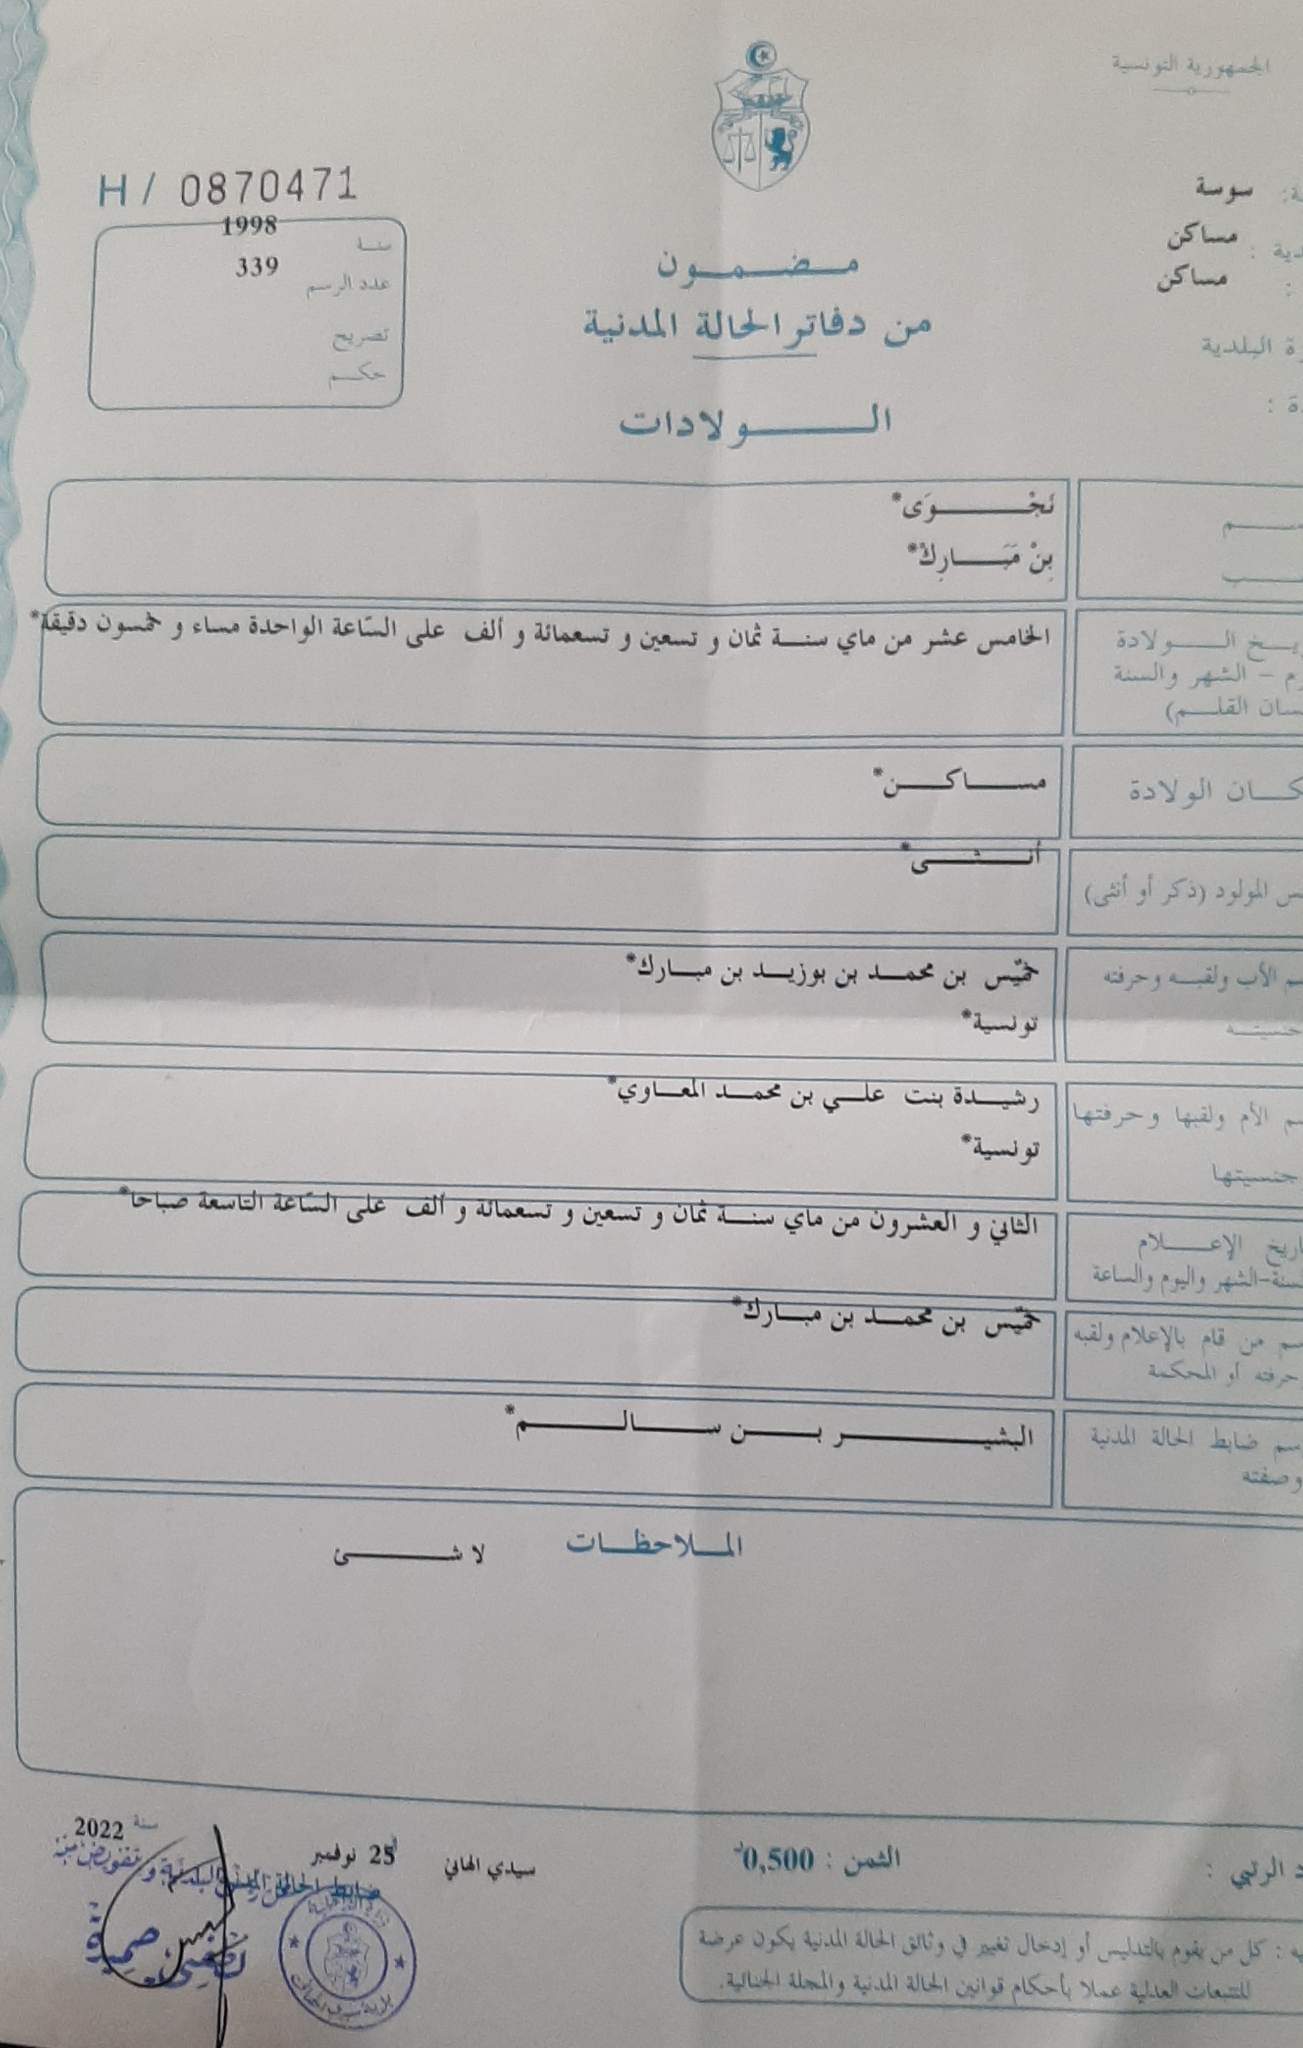 الجمهورية التونسية
سوسة
مساكن
مساكن
البلدية
H / 0870471
سنة 1998
عدد الرسم 339
تصريح
حكم
مضمون
من دفاتر الحالة المدنية
الولادات
نَجْوَى*
بِنْ مَبَارِكْ*
الولادة
الشهر والسنة
القلم)
الخامس عشر من ماي سنة ثمان و تسعين و تسعمائة و ألف على السّاعة الواحدة مساء و خمسون دقيقة*
الولادة
مساكن*
المولود (ذكر أو أنثى)
أنثى*
الأب ولقبه وحرفته
خميّس بن محمد بن بوزيد بن مبارك*
تونسية*
الأم ولقبها وحرفتها
جنسيتها
رشيدة بنت علي بن محمد المعاوي*
تونسية*
الإعلام
السنة-الشهر واليوم والساعة
الثاني و العشرون من ماي سنة ثمان و تسعين و تسعمائة و ألف على السّاعة التاسعة صباحا*
من قام بالإعلام ولقبه
حرفته أو المحكمة
خميّس بن محمد بن مبارك*
ضابط الحالة المدنية
وصفته
البشير بن سالم*
الملاحظات
لا شئ
الرتبي :
الثمن : 0,500د
سيدي الهاني
25 نوفمبر
سنة 2022
ضابط الحالة المدنية
كل من يقوم بالتدليس أو إدخال تغيير في وثائق الحالة المدنية يكون عرضة
للتتبعات العدلية عملا بأحكام قوانين الحالة المدنية والمجلة الجنائية.